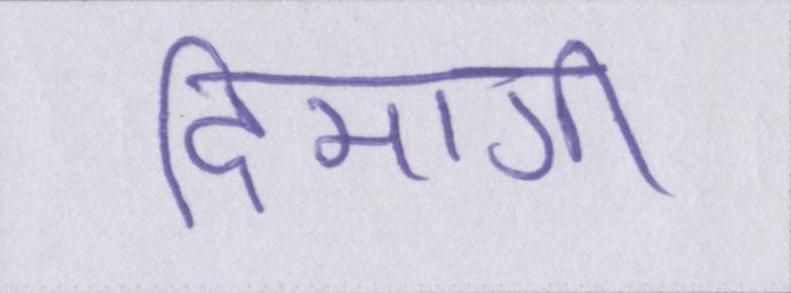 दिमागी